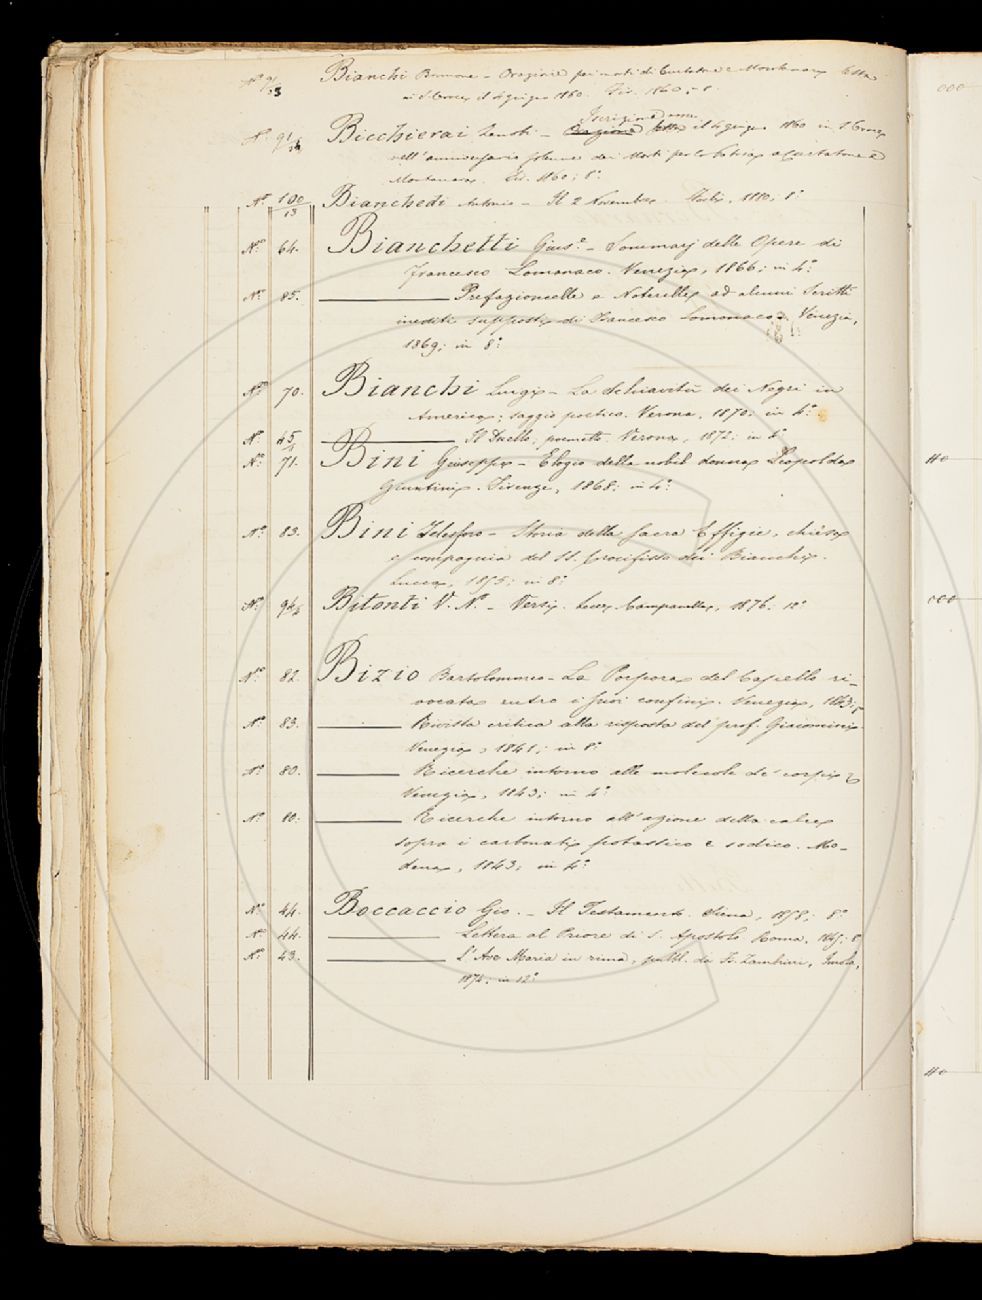 N.° 9/35 Bianchi Brunone – Orazione pei morti di Curtatone e Montanara letta
in S. Croce il 4 giugno 1860. Fir. 1860; 8.
N.° 91/34 Bicchierai Zanobi – Orazione Iscrizioni letta il 4 giugno 1860 in S. Croce
nell'anniversario solenne dei Morti per la Patria a Curtatone e
Montanara. Fir. 1860; 8.°
N.° 100/13 Bianchedi Antonio – Il 2 Novembre. Forlì, 1880; 8.°
N.° 64. Bianchetti Gius.e – Sommarj delle Opere di
Francesco Lomonaco. Venezia, 1866; in 4.°
N.° 85. ——— Prefazioncelle e Noterelle ad alcuni Scritti
inediti supposti di Francesco Lomonaco. Venezia,
1869; in 8.°
N.° 70. Bianchi Luigi – La Schiavitù dei Negri in
America; saggio poetico. Verona, 1870; in 4.°
N.° 45 ——— Il Duello, poemetto. Verona, 1872; in 8.°
N.° 71. Bini Giuseppe – Elogio della nobil donna Leopolda
Giuntini. Firenze, 1868; in 4.°
N.° 83. Bini Telesforo – Storia della Sacra Effigie, chiesa
e compagnia del SS. Crocifisso dei Bianchi.
Lucca, 1855; in 8.°
N.° 94/5 Bitonti V. N.° – Versi. Lecce, Campanella, 1876; 12.°
N.° 82. Bizio Bartolommeo – La Porpora del Capello ri-
vocata entro i suoi confini. Venezia, 1843; 8
N.° 83. ——— Rivista critica alla risposta del prof. Giacomini.
Venezia, 1841; in 8.°
N.° 80. ——— Ricerche intorno alle molecole de' corpi &
Venezia, 1843; in 4.°
N.° 80. ——— Ricerche intorno all'azione della calce
sopra i carbonati potassico e sodico. Mo-
dena, 1843; in 4.°
N.° 44. Boccaccio Gio. – Il Testamento. Siena, 1853; 8.°
N.° 44. ——— Lettera al Priore di S. Apostolo. Roma, 1845; 8
N.° 43. ——— L'Ave Maria in rima, pubbl. da F. Zambrini, Imola,
1874; in 12.°